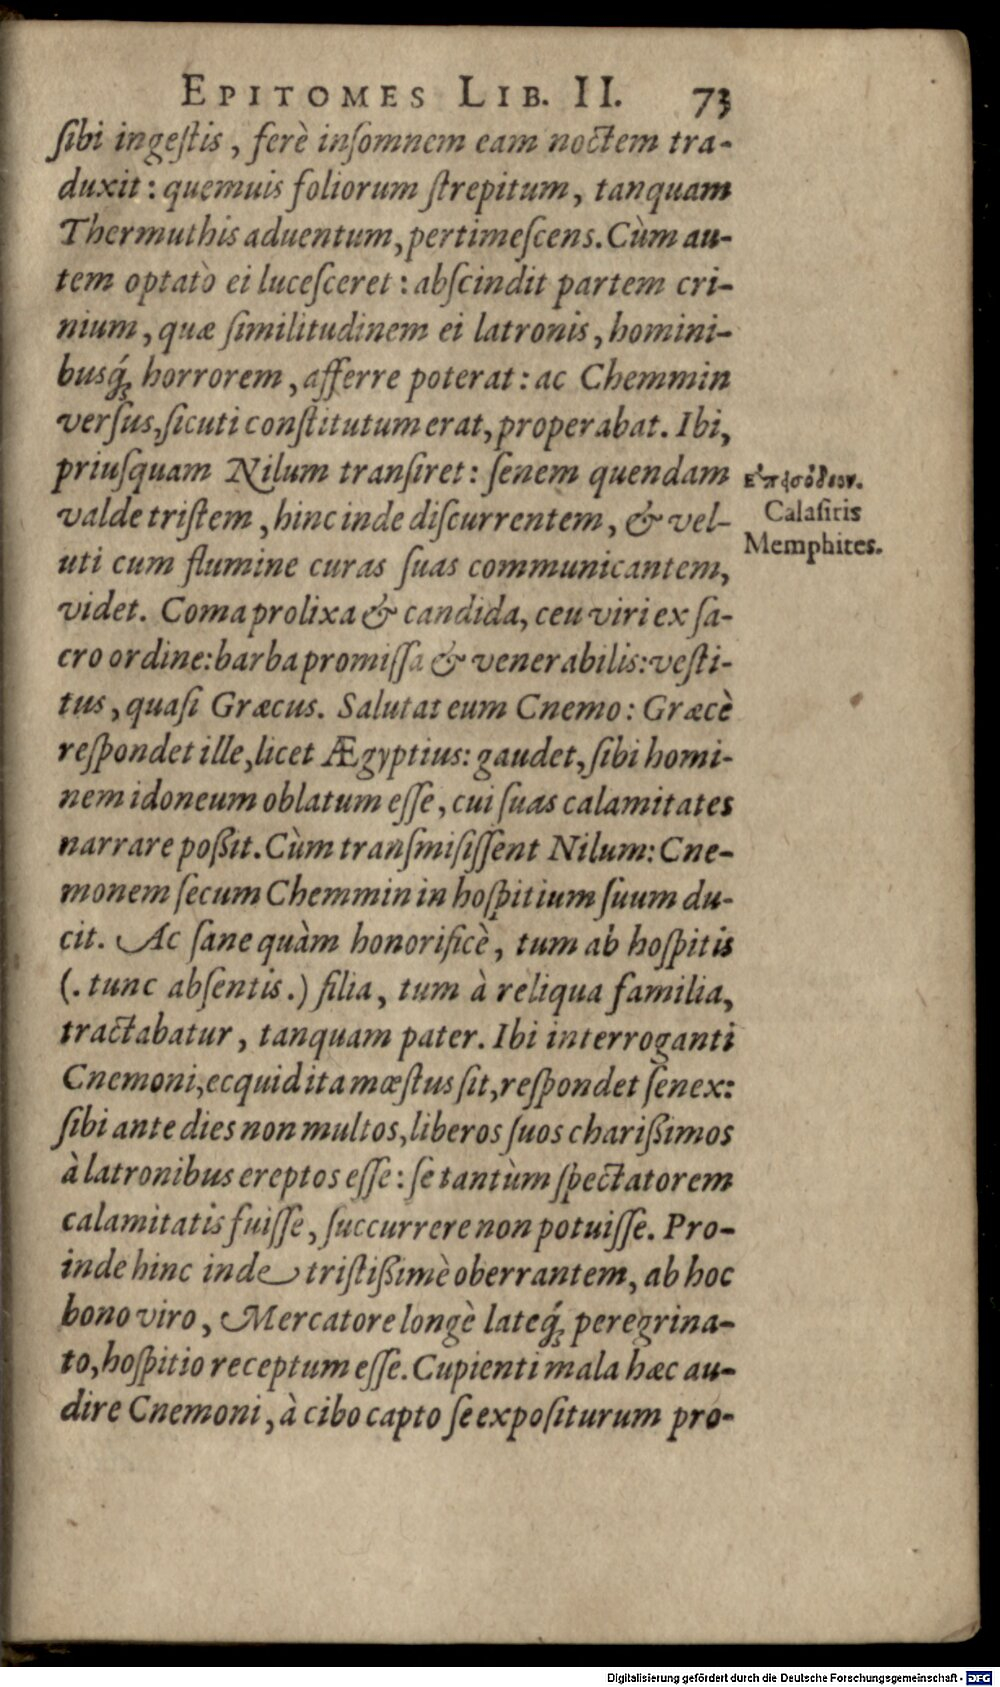 EPITOMES LIB. II. 73
ſibi ingeſtis, ferè inſomnem eam noctem tra-
duxit: quemuis foliorum ſtrepitum, tanquam
Thermuthis aduentum, pertimeſcens. Cùm au-
tem optatò ei luceſceret: abſcindit partem cri-
nium, quæ ſimilitudinem ei latronis, homini-
busq́ꝫ horrorem, afferre poterat: ac Chemmin
verſus, ſicuti conſtitutum erat, properabat. Ibi,
priuſquam Nilum tranſiret: ſenem quendam
valde triſtem, hinc inde diſcurrentem, & vel-
uti cum flumine curas ſuas communicantem,
videt. Coma prolixa & candida, ceu viri ex ſa-
cro ordine: barba promiſſa & venerabilis: veſti-
tus, quaſi Græcus. Salutat eum Cnemo: Græcè
reſpondet ille, licet Ægyptius: gaudet, ſibi homi-
nem idoneum oblatum eſſe, cui ſuas calamitates
narrare poßit. Cùm tranſmiſiſſent Nilum: Cne-
monem ſecum Chemmin in hoſpitium ſuum du-
cit. Ac ſane quàm honorificè, tum ab hoſpitis
(. tunc abſentis.) filia, tum à reliqua familia,
tractabatur, tanquam pater. Ibi interroganti
Cnemoni, ecquid ita mœſtus ſit, reſpondet ſenex:
ſibi ante dies non multos, liberos ſuos charißimos
à latronibus ereptos eſſe: ſe tantùm ſpectatorem
calamitatis fuiſſe, ſuccurrere non potuiſſe. Pro-
inde hinc inde triſtißimè oberrantem, ab hoc
bono viro, Mercatore longè lateq́ꝫ peregrina-
to, hoſpitio receptum eſſe. Cupienti mala hæc au-
dire Cnemoni, à cibo capto ſe expoſiturum pro-
Calaſiris
Memphites.
Digitalisierung gefördert durch die Deutsche Forschungsgemeinschaft - DFG